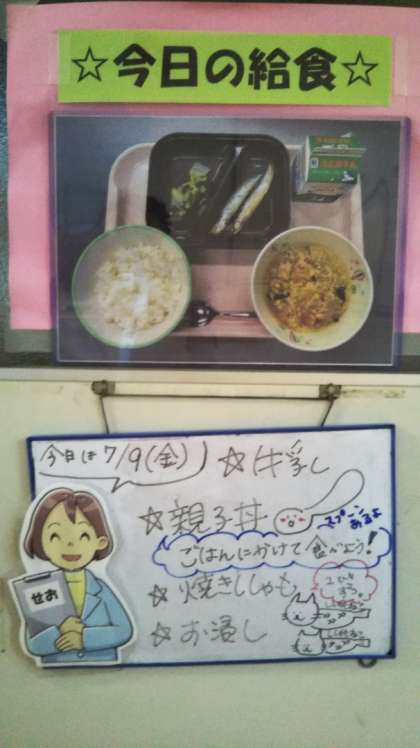 ☆今日の給食☆
今日は7/9(金)
☆牛乳
☆親子丼
スプーンあるよ
ごはんにかけて食べよう!
☆焼きししゃも
2ひきずつ。
☆お浸し
せお